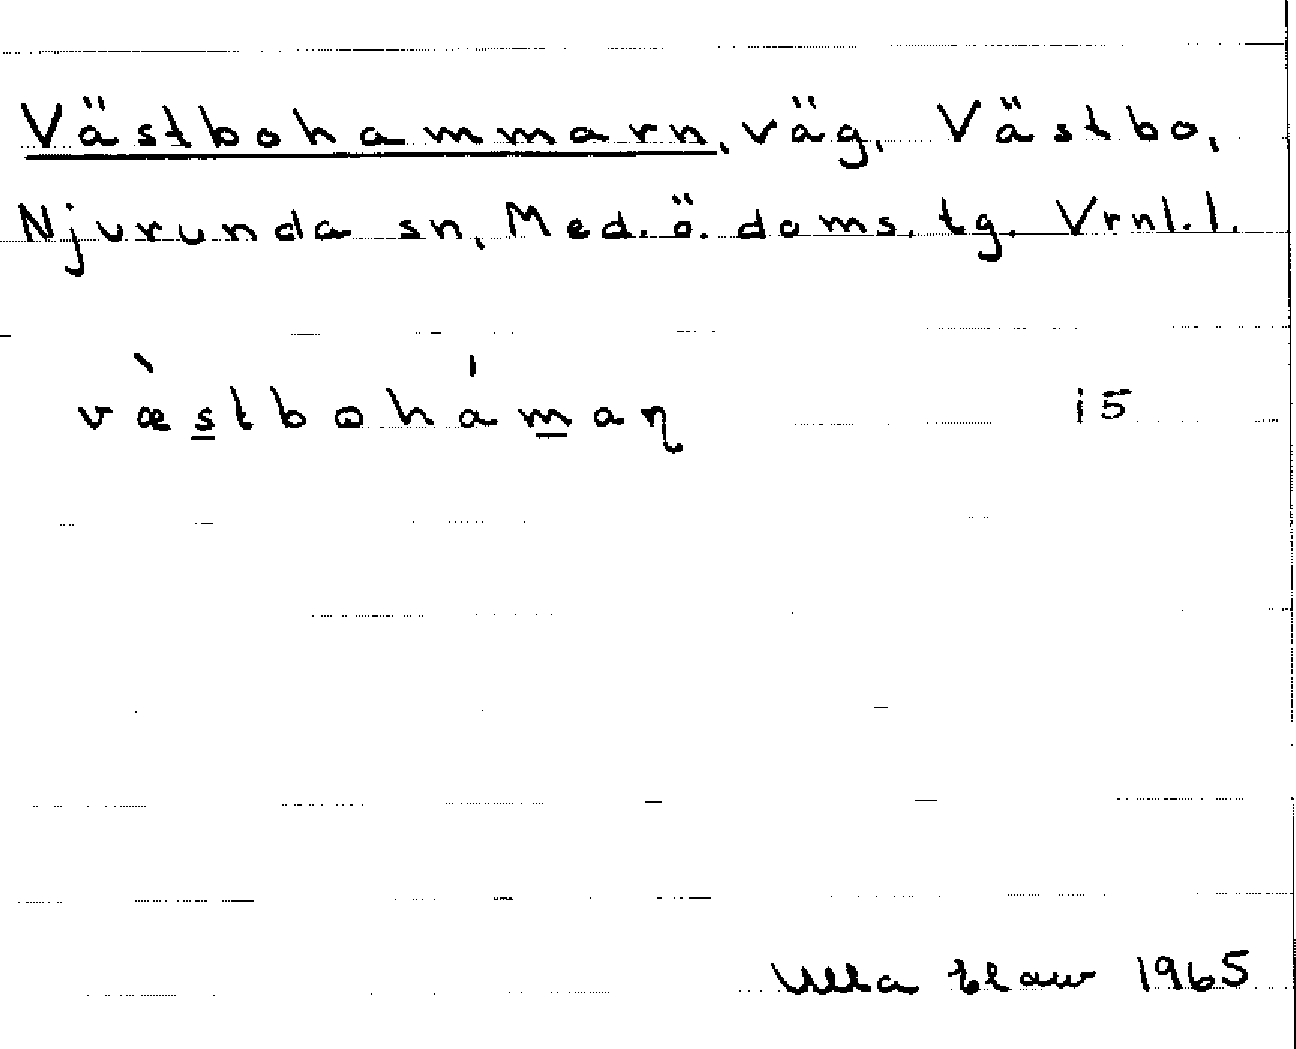 Västbohammarn, väg, Västbo,
Njurunda sn, Med.ö. doms. tg. Vrnl.l.
væ̀s̲tbohám̲aɳ i5
Ulla 1965